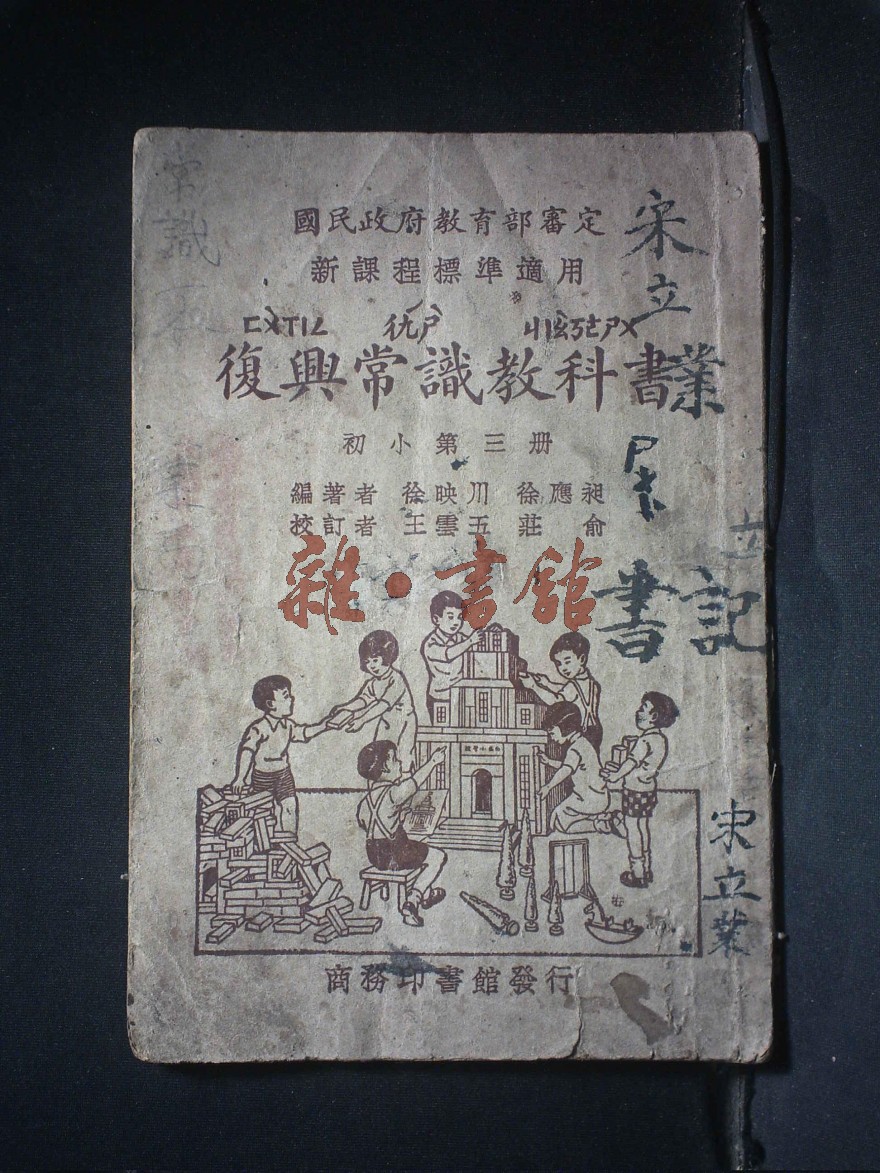 國民政府教育部審定
新課程標準適用
ㄈㄨㄒㄧㄥ ㄔㄤㄕ ㄐㄧㄠㄎㄜㄕㄨ
復興常識教科書
初小第三册
編著者 徐映川 徐應昶
校訂者 王雲五 莊俞
雜·書館
商務印書館發行
宋立業
書記
立
宋立業
常識